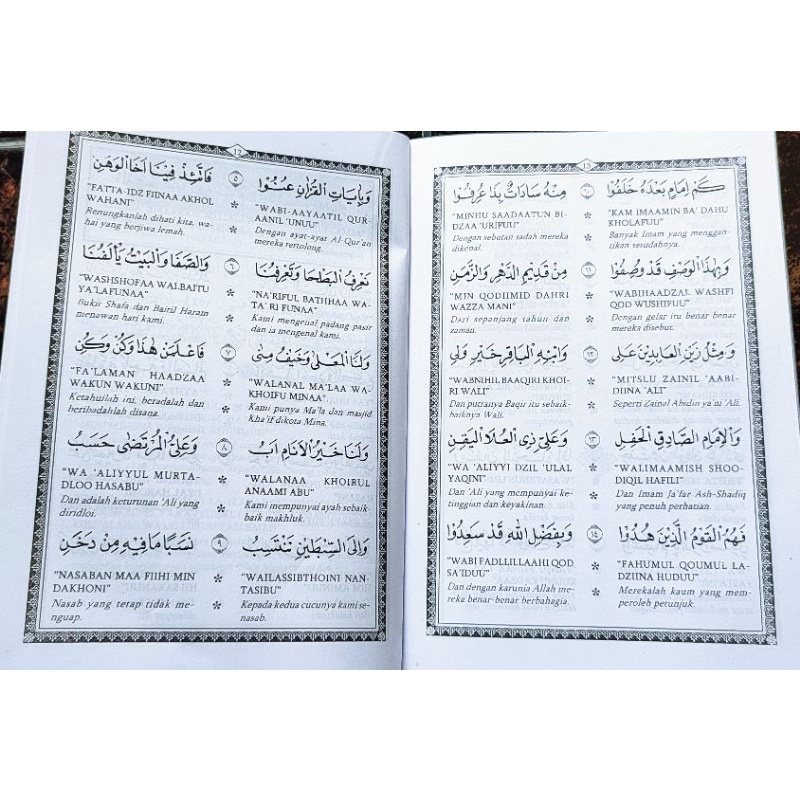 12
وَبِاٰيَاتِ الْقُرْاٰنِ عُنُوْا ٥ فَاتَّئِذْ فِيْنَا اَخَا الْوَهَنِ
"WABI-AAYAATIL QUR-
AANIL 'UNUU"
Dengan ayat-ayat Al-Qur'an
mereka tertolong.
*
*
"FATTA-IDZ FIINAA AKHOL
WAHANI"
Renungkanlah dihati kita, wa-
hai yang berjiwa lemah.
نَعْرِفُ الْبَطْحَا وَتَعْرِفُنَا ٦ وَالصَّفَا وَالْبَيْتُ يَأْلَفُنَا
"NA'RIFUL BATHHAA WA-
TA' RI FUNAA"
Kami mengenal padang pasir
dan ia mengenal kami.
*
*
"WASHSHOFAA WALBAITU
YA'LAFUNAA"
Bukit Shafa dan Baitil Haram
menawan hati kami.
وَلَنَا الْمَعْلَى وَخَيْفُ مِنَى ٧ فَاعْلَمَنْ هٰذَا وَكُنْ وَكُنِ
"WALANAL MA'LAA WA-
KHOIFU MINAA".
Kami punya Ma'la dan masjid
Kha'if dikota Mina.
*
*
"FA'LAMAN HAADZAA
WAKUN WAKUNI"
Ketahuilah ini, beradalah dan
beribadahlah disana.
وَلَنَا خَيْرُ الْاَنَامِ اَبُ ٨ وَعَلِيُّ الْمُرْتَضٰى حَسَبُ
"WALANAA KHOIRUL
ANAAMI ABU"
Kami mempunyai ayah sebaik
baik makhluk.
*
*
"WA 'ALIYYUL MURTA-
DLOO HASABU"
Dan adalah keturunan 'Ali yang
diridloi.
وَاِلَى السِّبْطَيْنِ نَنْتَسِبُ ٩ نَسَبًا مَا فِيْهِ مِنْ دَخَنِ
"WAILASSIBTHOINI NAN-
TASIBU"
Kepada kedua cucunya kami se-
nasab.
*
*
"NASABAN MAA FIIHI MIN
DAKHONI"
Nasab yang tetap tidak me-
nguap.
13
كَمْ اِمَامٍ بَعْدَهُ خَلَفُوْا ١٠ مِنْهُ سَادَاتٌ بِذَا عُرِفُوْا
"KAM IMAAMIN BA' DAHU
KHOLAFUU"
Banyak Imam yang menggan-
tikan sesudahnya.
*
*
"MINHU SAADAATUN BI-
DZAA 'URIFUU"
Dengan sebutan sadah mereka
dikenal.
وَبِهٰذَا الْوَصْفِ قَدْ وُصِفُوْا ١١ مِنْ قَدِيْمِ الدَّهْرِ وَالزَّمَنِ
"WABIHAADZAL WASHFI
QOD WUSHIFUU"
Dengan gelar itu benar benar
mereka disebut.
*
*
"MIN QODIIMID DAHRI
WAZZA MANI"
Dari sepanjang tahun dan
zaman.
وَمِثْلُ زَيْنِ الْعَابِدِيْنَ عَلِى ١٢ وَابْنِهِ الْبَاقِرِ خَيْرِ وَلِى
"MITSLU ZAINIL 'AABI-
DIINA 'ALI"
Seperti Zainal Abidin ya'ni 'Ali.
*
*
"WABNIHIL BAAQIRI KHOI-
RI WALI"
Dan putranya Baqir itu sebaik-
baiknya Wali.
وَالْاِمَامِ الصَّادِقِ الْحَفِلِ ١٣ وَعَلِيِّ ذِى الْعُلَا الْيَقِنِ
"WALIMAAMISH SHOO-
DIQIL HAFILI"
Dan Imam Ja'far Ash-Shadiq
yang penuh perhatian.
*
*
"WA 'ALIYYI DZIL 'ULAL
YAQINI"
Dan 'Ali yang mempunyai ke-
tinggian dan keyakinan.
فَهُمُ الْقَوْمُ الَّذِيْنَ هُدُوْا ١٤ وَبِفَضْلِ اللهِ قَدْ سَعِدُوْا
"FAHUMUL QOUMUL LA-
DZIINA HUDUU"
Merekalah kaum yang mem-
peroleh petunjuk.
*
*
"WABI FADLLILLAAHI QOD
SA'IDUU"
Dan dengan karunia Allah me-
reka benar-benar berbahagia.